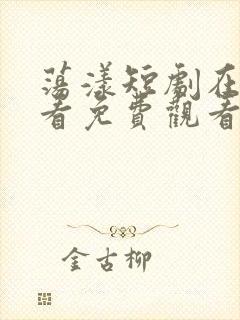 荡漾短劇在
看免費觀看
金古柳